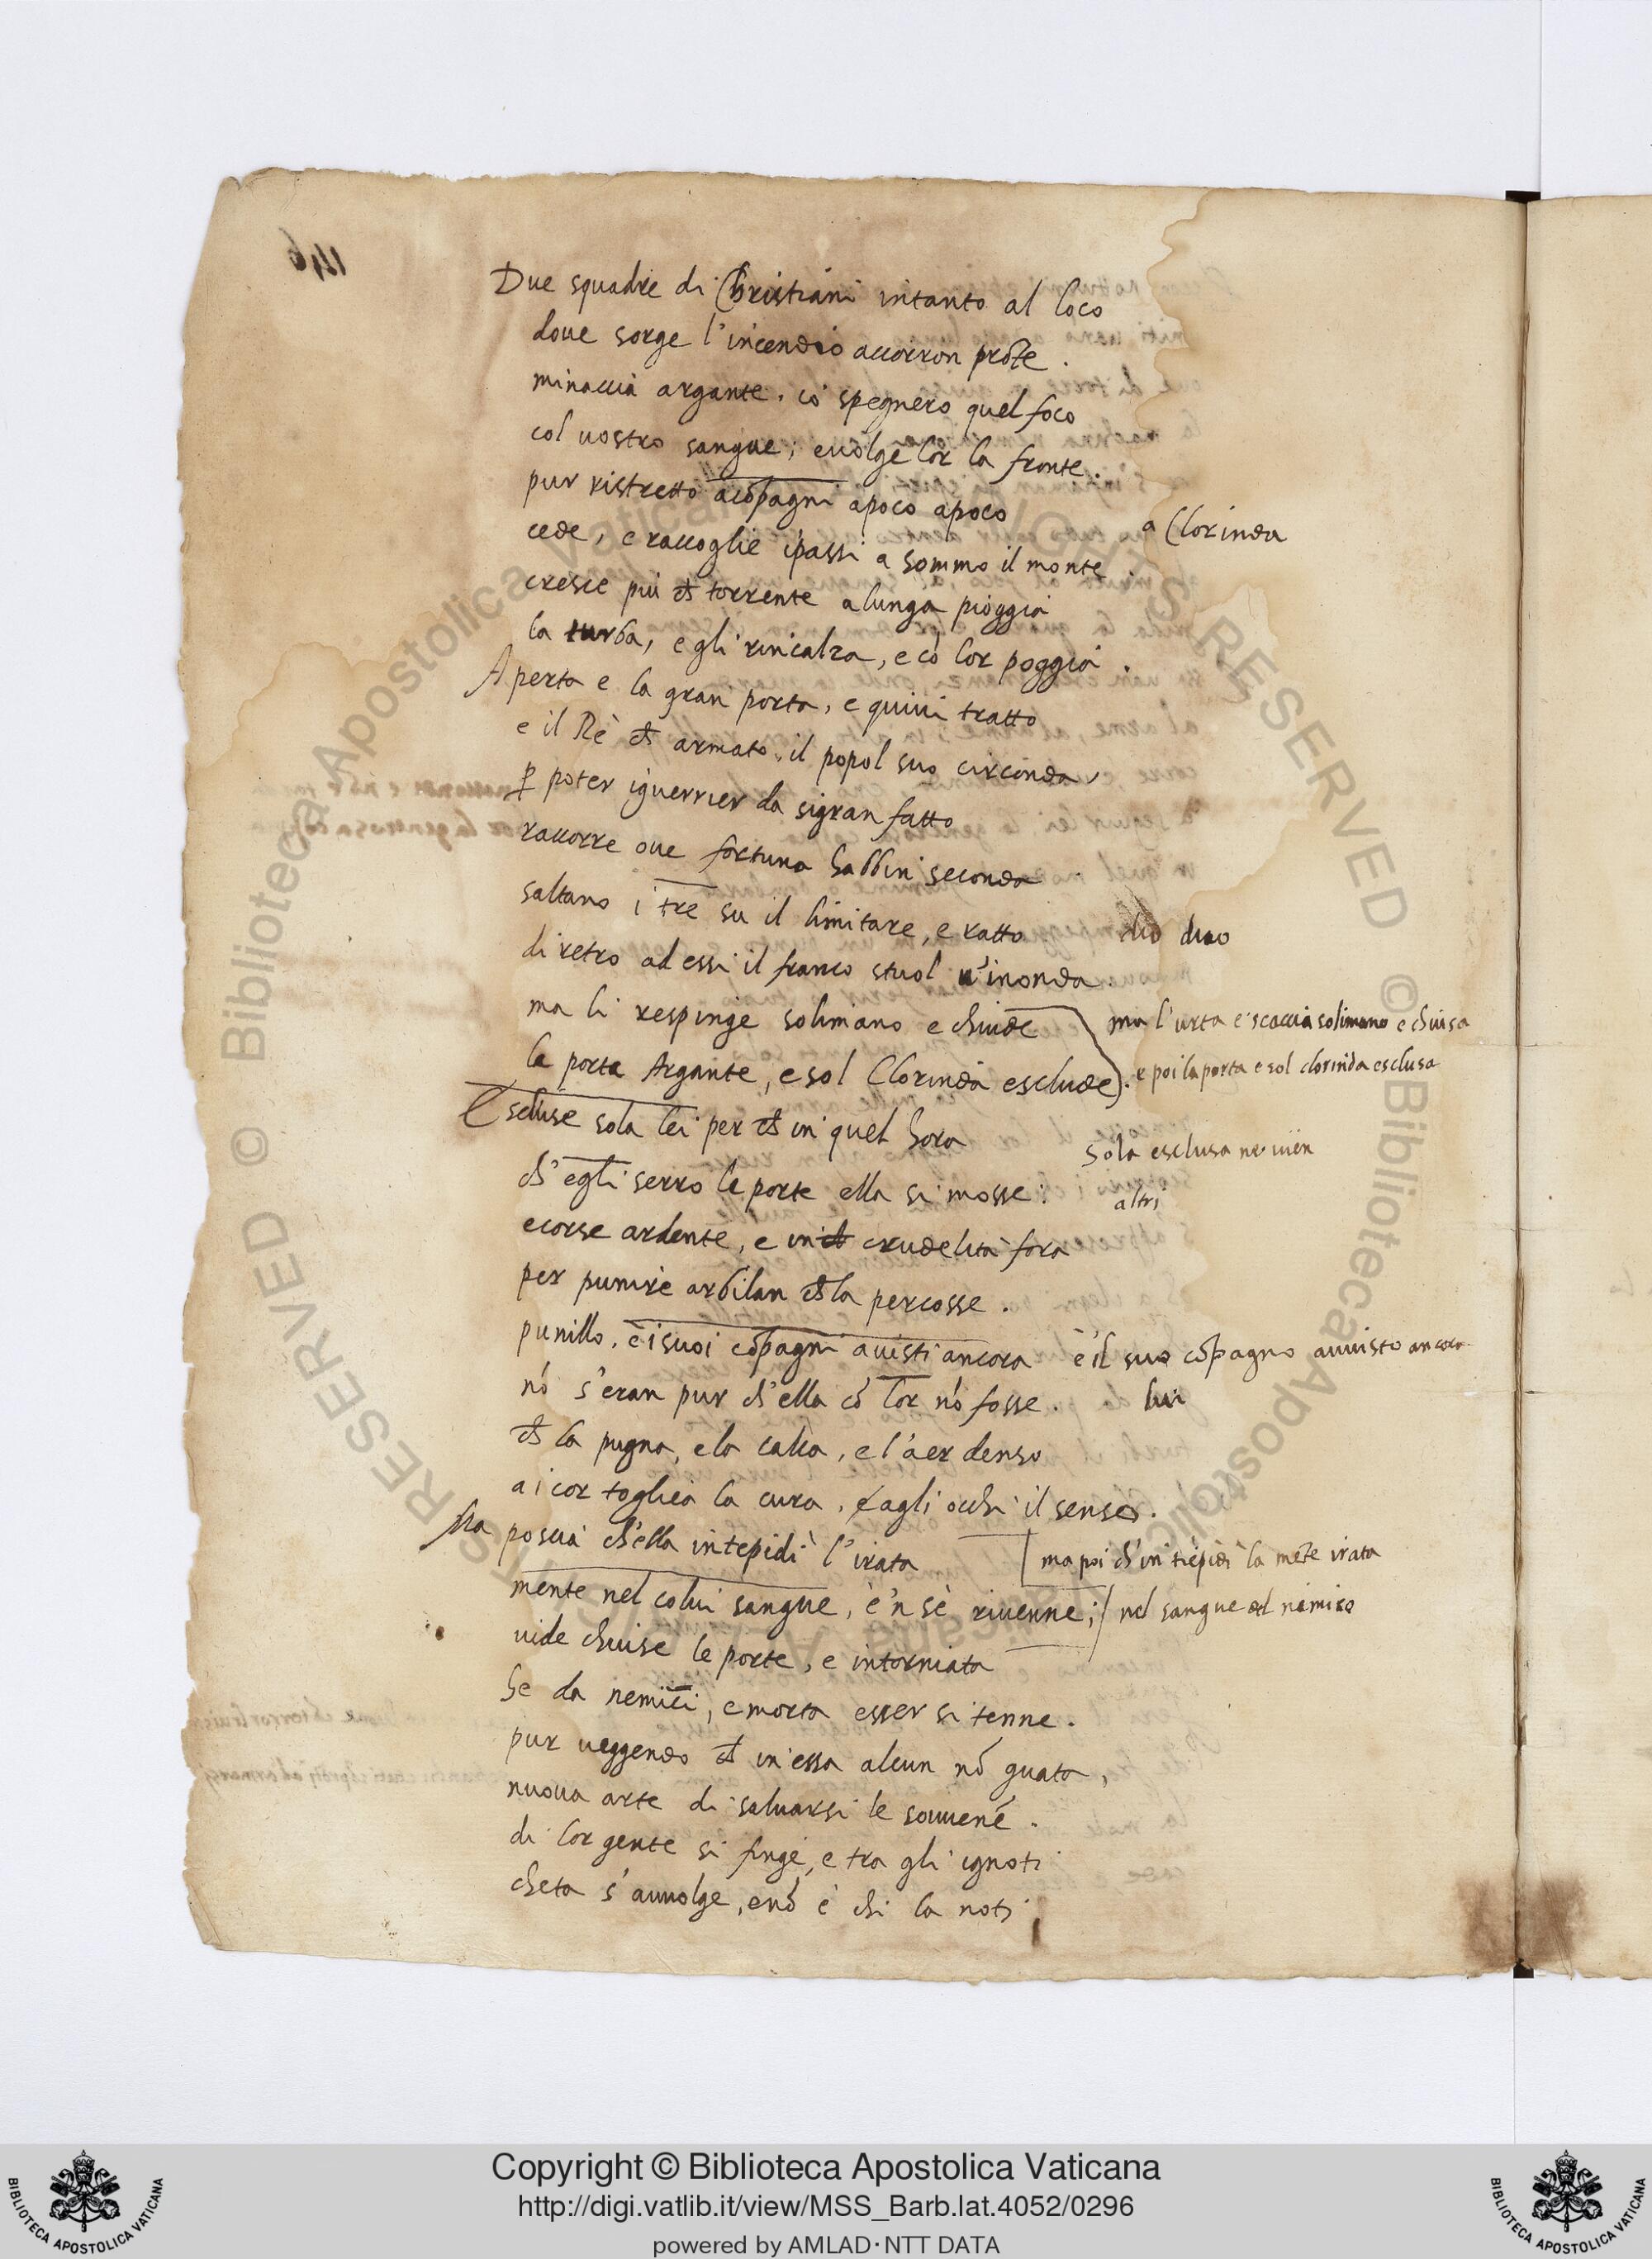 146
Due squadre di Christiani intanto al loco
doue sorge l'incendio accorron prõte.
minaccia argante. io spegnero quel foco
col uostro sangue; e uolge lor la fronte.
pur ristretto a cõpagni apoco apoco
a Clorinda
cede, e raccoglie i passi a sommo il monte.
cresce più ch̃ torrente a lunga pioggia
la turba, e gli rincalza, e cõ lor poggia.
Aperta e la gran porta, e quiui tratto
e il Rè ch̃ armato il popol suo circonda,
ꝑ poter i guerrier da si gran fatto
raccorre oue fortuna habbin seconda
saltano i tre su il limitare, e ratto
duo duo
diretro ad essi il franco stuol u'inonda.
ma li respinge solimano e chiude
ma l'urta e scaccia solimano e chiusa
la porta Argante, e sol Clorinda esclude).
e poi la porta e sol clorinda esclusa
Escluse sola lei per ch̃ in quel hora
Sola esclusa ne uien
ch'egli serro le porte ella si mosse:
altri
e corse ardente, e in crudelita fora
per punire arbilan ch̃ la percosse.
punillo. è i suoi cõpagni auisti ancora
è 'l suo cõpagno auuisto ancora
nõ s'eran pur ch'ella cõ lor nõ fosse.
lui
ch̃ la pugna, e la calca, e l'aer denso
ai cor togliea la cura, & agli occhi il senso.
Ma poscia ch'ella intepidì l'irata
ma poi ch'intepidì la mẽte irata
mente nel colui sangue, è 'n sè riuenne;
nel sangue del nimico
uide chiuse le porte, e intorniata
Se da nemici, e morta esser si tenne.
pur ueggendo ch̃ in essa alcun nõ guata,
nuoua arte di saluarsi le souuenẽ.
di lor gente si finge, e tra gli ignoti
cheta s'auuolge, e nõ è chi la noti
Copyright © Biblioteca Apostolica Vaticana
http://digi.vatlib.it/view/MSS_Barb.lat.4052/0296
powered by AMLAD·NTT DATA
BIBLIOTECA APOSTOLICA VATICANA
BIBLIOTECA APOSTOLICA VATICANA